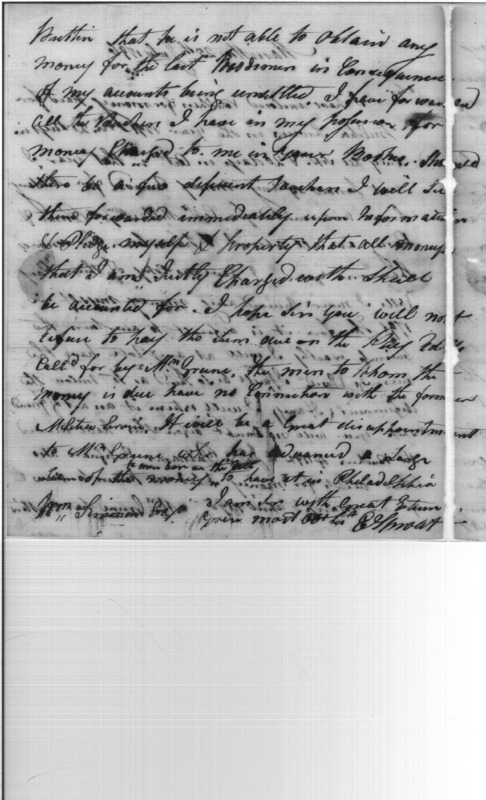 that he is not able to obtain any
money for the last in Consequence
of my accounts being unsettled I have forwarded
all the Vouchers I have in my possession for
money Charged to me in your Books. Should
there be a few deficient Vouchers I will
them forwarded immediately upon Information
& Pledge myself & Property that all money
that I am Justly Charged with Shall
be accounted for. I hope Sir you will not
refuse to pay the sum due on the Pay
Call'd for by Mr Greene, the men to whom the
money is due have no Connection with the former
Militia Service. It will be a Great disappointment
to Mr Greene who has advanced a Large
to men born on the Rolls
of the money to have at in Philadelphia
I am Sir with Great Esteem
Simmons Esqr your most Obt Sert E Sproat